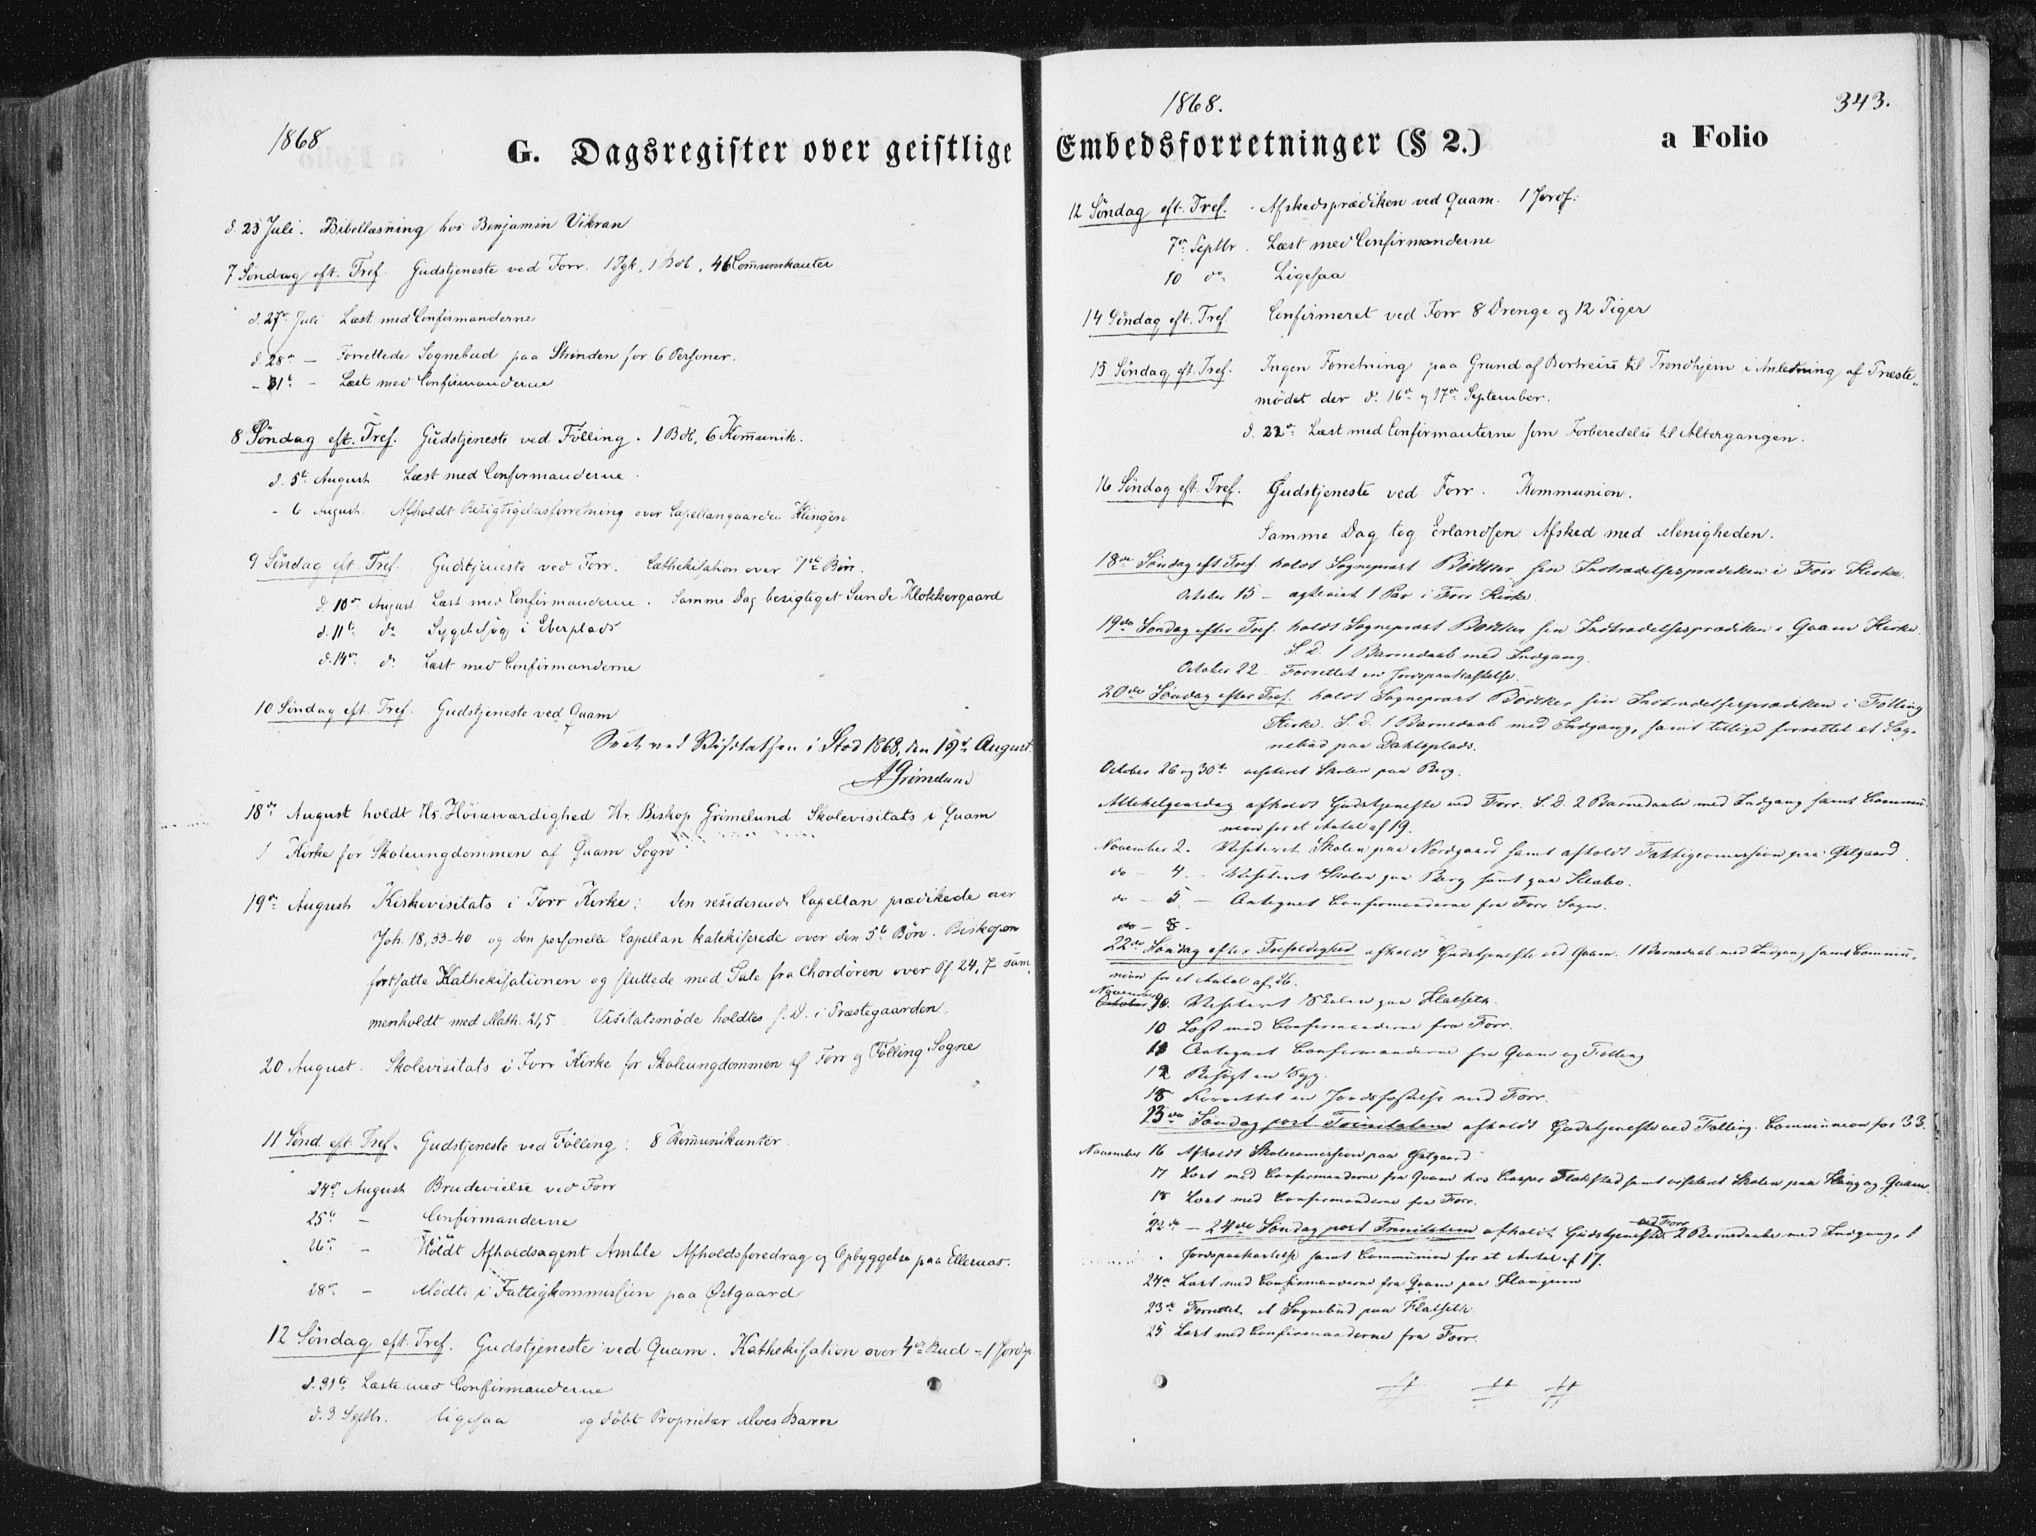 1868
G. Dagsregister over geistlige
d. 23 Juli. Bibellæsning hos Benjamin Vikran
7 Søndag eft. Tref. Gudstjeneste ved Forr. 1 Jgk, 1 Brb, 46 Communikanter
d. 27de Juli Læst med Confirmanderne
d. 28de — Forrettede Sognebud paa Strinden for 6 Personer.
- 31te — Læst med Confirmanderne
8 Søndag eft. Tref. Gudstjeneste ved Følling. 1 Brb, 6 Kommunik.
d. 5te August Læst med Confirmanderne.
- 6 August. Afholdt Besigtigelsesforretning over Capellangaarden Klingen
9 Søndag eft. Tref. Gudstjeneste ved Forr. Cathekisation over 7de Bøn.
d. 10de August. Læst med Confirmanderne. Samme Dag besigtiget Sunde Klokkergaard
d. 11te do Sygebesøg i Eberplads
d. 14de do Læst med Confirmanderne
10 Søndag eft. Tref. Gudstjeneste ved Quam
Seet ved Visitatsen i Stod 1868, den 19de August.
A Grimelund
18de August holdt Hs. Høiærværdighed Hr. Biskop Grimelund Skolevisitats i Quam
Kirke for Skoleungdommen af Quam Sogn
19de August Kirkevisitats i Forr Kirke; den residerende Capellan prædikede over
Joh. 18, 33-40 og den personelle Capellan katekiserede over den 5te Bøn. Biskopen
fortsatte Kathekisationen og sluttede med Tale fra Chordøren over Ps. 24, 7 sam-
menholdt med Math. 21,5 Visitatsmøde holdtes s. D. i Præstegaarden.
20 August. Skolevisitats i Forr Kirke for Skoleungdommen af Forr og Følling Sogne
11 Sønd. eft. Tref. Gudstjeneste ved Følling: 8 Kommunikanter
24de August Brudevielse ved Forr
25te — Confirmanderne
26de — Holdt Afholdsagent Amble Afholdsforedrag og Opbyggelse paa Ellernæs.
28de — Mødte i Fattigkommissien paa Østgaard
12 Søndag eft. Tref. Gudstjeneste ved Quam. Kathekisation over 4de Bud - 1 Jordp.
d. 31te Læste med Confirmanderne
d. 3 Septbr. ligesaa og døbt Proprietær Moes Barn
1868.
343.
Embedsforretninger (§ 2.)
a Folio
12 Søndag eft. Tref. Afskedsprædiken ved Quam. 1 Jordf.
7de Septbr. Læst med Confirmanderne
10 do Ligesaa
14 Søndag eft. Tref Confirmeret ved Forr 8 Drenge og 12 Piger
15 Søndag eft. Tref. Ingen Forretning paa Grund af Bortreise til Trondhjem i Anledning af Præste-
mødet der d. 16de og 17de September.
d. 22de Læst med Confirmanterne som Forberedelse til Altergangen.
16 Søndag eft. Tref. Gudstjeneste ved Forr. Kommunion.
Samme Dag tog Erlandsen Afsked med Menigheden.
18de Søndag eft Tref. holdt Sogneprest Bødtker sin Indtrædelsesprædiken i Forr Kirke.
October 15 — ægteviet 1 Par i Forr Kirke.
19de Søndag efter Tref. holdt Sogneprest Bødtker sin Indtrædelsesprædiken i Quam Kirke.
S. D. 1 Barnedaab med Indgang.
October 22 Forrettet en Jordspaakastelse.
20de Søndag efter Tref. holdt Sogneprest Bødtker sin Indtrædelsesprædiken i Følling
Kirke. S. D. 1 Barnedaab med Indgang, samt tillige forrettet et Sog-
nebud paa Dahlsplads.
October 26 og 30te visiteret Skolen paa Berg.
Allehelgensdag afholdt Gudstjeneste ved Forr. S. D. 2 Barnedaabe med Indgang samt Commu-
nion for et Antal af 19.
November 2. Visiteret Skolen paa Nordgaard samt afholdt Fattigcommission paa Østgaard.
do — 4. — Visiteret Skolen paa Berg samt paa Klæbo.
do — 5 — Antegnet Confirmanderne fra Forr Sogn.
do — 8 -
22de Søndag efter Trefoldighed afholdt Gudstjeneste ved Quam. 1 Barnedaab med Indgang samt Commu-
nion for et Antal af 26.
November
October 10. Visiteret Skolen paa Halseth.
10 Læst med Confirmanderne fra Forr.
11 Antegnet Confirmanderne fra Quam og Følling
12 Besøgt en Syg.
15 Forrettet en Jordsfæstelse ved Forr.
23de Søndag post Trinitatem afholdt Gudstjeneste ved Følling. Communion for 33.
November 16 Afholdt Skolecommission paa Østgaard
17 Læst med Confirmanderne fra Quam hos Casper Flakstad samt visiteret Skolen paa Haug og Quam.
18 Læst med Confirmanderne fra Forr.
22de — 24de Søndag post Trinitatem afholdt Gudstjeneste ved Forr 2 Barnedaabe med Indgang, 1
Jordspaakastelse samt Communion for et Antal af 17.
24de Læst med Confirmanderne fra Quam paa Haugum
23de Forrettet et Sognebud paa Halseth.
25 Læst med Confirmanderne fra Forr.